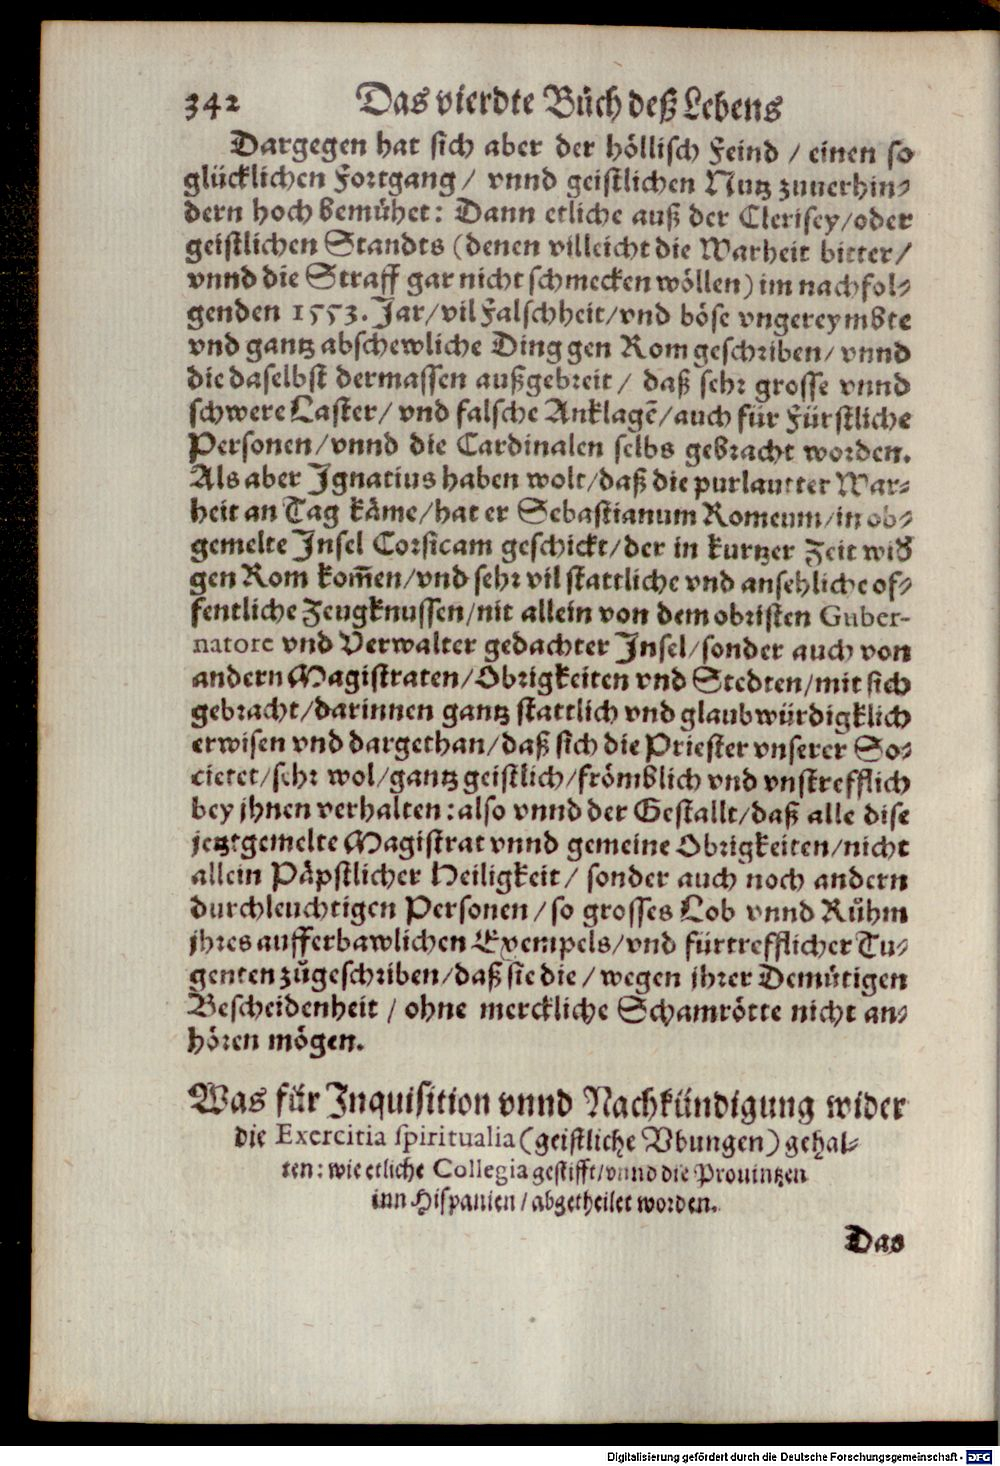 342 Das vierdte Bůch deß Lebens
Dargegen hat sich aber der höllisch Feind / einen so
glücklichen Fortgang / vnnd geistlichen Nutz zuuerhin⸗
dern hoch bemühet: Dann etliche auß der Clerisey/oder
geistlichen Standts (denen villeicht die Warheit bitter/
vnnd die Straff gar nicht schmecken wöllen) im nachfol⸗
genden 1553. Jar/vil Falschheit/vnd böse vngereymbte
vnd gantz abschewliche Ding gen Rom geschriben/ vnnd
die daselbst dermassen außgebreit / daß sehr grosse vnnd
schwere Laster/ vnd falsche Anklagẽ/auch für Fürstliche
Personen/vnnd die Cardinalen selbs gebracht worden.
Als aber Ignatius haben wolt/daß die purlautter War⸗
heit an Tag käme/hat er Sebastianum Romeum/in ob⸗
gemelte Insel Corsicam geschickt/der in kurtzer Zeit wid
gen Rom kom̃en/vnd sehr vil stattliche vnd ansehliche of⸗
fentliche Zeugknussen/nit allein von dem obristen Guber-
natore vnd Verwalter gedachter Insel/sonder auch von
andern Magistraten/Obrigkeiten vnd Stedten/mit sich
gebracht/darinnen gantz stattlich vnd glaubwürdigklich
erwisen vnd dargethan/daß sich die Priester vnserer So⸗
cietet/sehr wol/gantz geistlich/frömblich vnd vnstrefflich
bey jhnen verhalten: also vnnd der Gestallt/daß alle dise
jetztgemelte Magistrat vnnd gemeine Obrigkeiten/nicht
allein Päpstlicher Heiligkeit / sonder auch noch andern
durchleuchtigen Personen / so grosses Lob vnnd Růhm
jhres aufferbawlichen Exempels/vnd fürtrefflicher Tu⸗
genten zůgeschriben/daß sie die / wegen jhrer Demütigen
Bescheidenheit / ohne merckliche Schamrötte nicht an⸗
hören mögen.
Was für Inquisition vnnd Nachkündigung wider
die Exercitia spiritualia (geistliche Vbungen) gehal⸗
ten: wie etliche Collegia gestifft/vnnd die Prouintzen
inn Hispanien / abgetheilet worden.
Das
Digitalisierung gefördert durch die Deutsche Forschungsgemeinschaft - DFG